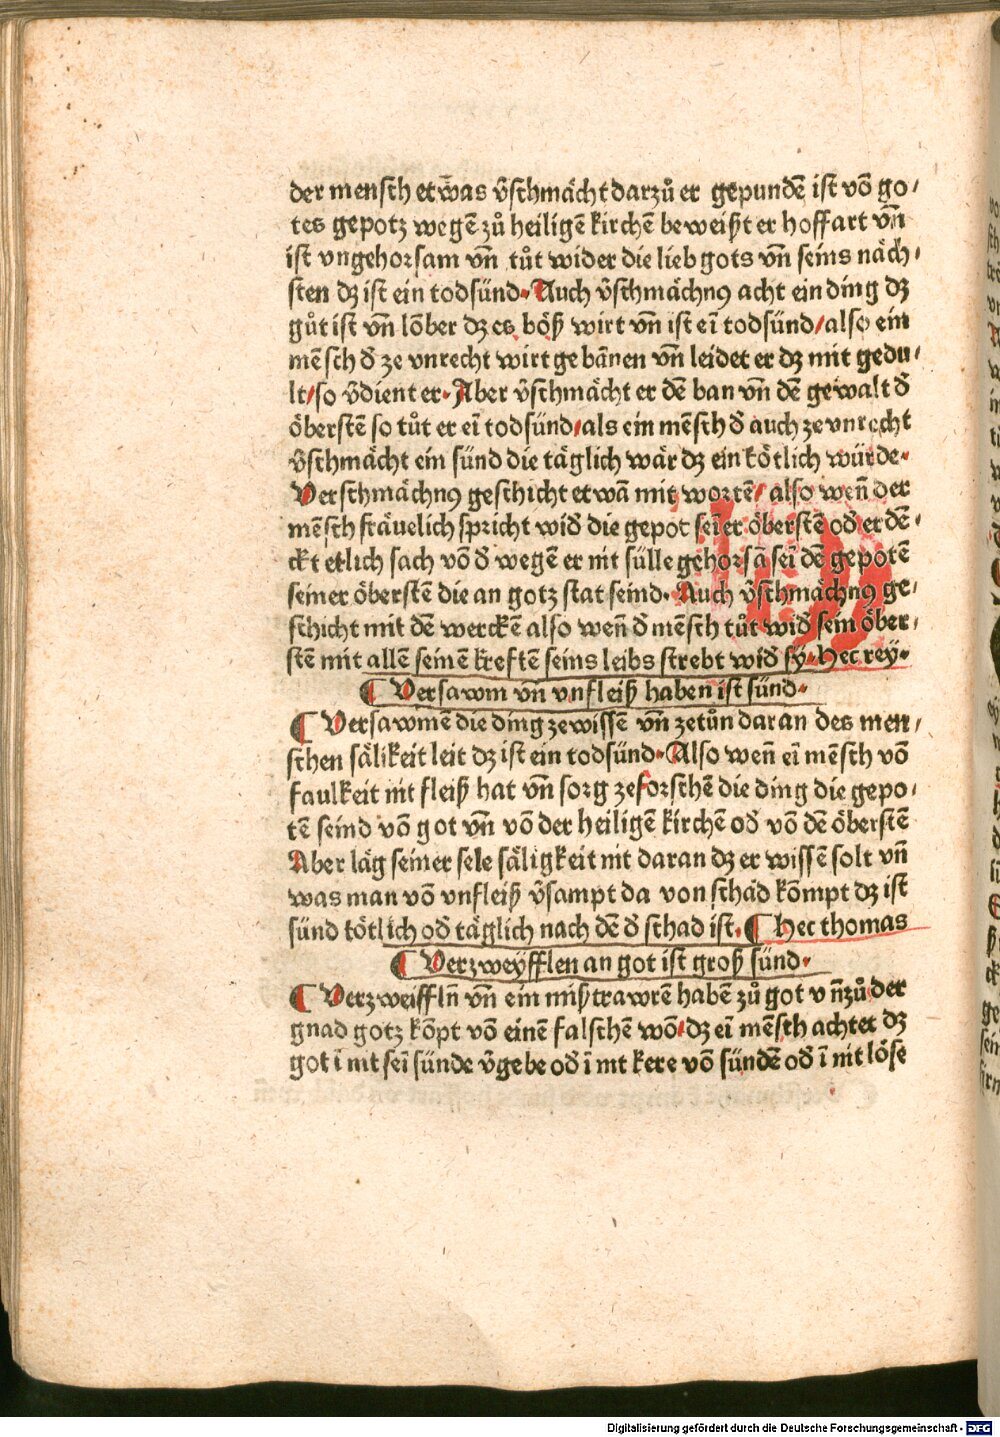 der mensch etw̄as v̄schmächt darzů er gepundē ist vō go⸗
tes gepotz wegē zů heiligē kirchē beweißt er hoffart vn̄
ist vngehorsam vn̄ tůt wider die lieb gots vn̄ seins näch⸗
sten dz ist ein todsünd. Auch v̄schmächnꝰ acht ein ding dz
gůt ist vn̄ lōber dz es böß wirt vn̄ ist eī todsünd/also ein
mēsch đ ze vnrecht wirt gebānen vn̄ leidet er dz mit gedu⸗
lt/so v̄dient er. Aber v̄schmächt er dē ban vn̄ dē gewalt đ
öberstē so tůt er eī todsünd/als ein mēsch đ auch ze vnrecht
v̄schmächt ein sünd die täglich wär dz ein kötlich würde.
Verschmächnꝰ geschicht etwā mit wortē/ also wen̄ der
mēsch fräuelich spricht wiđ die gepot seīer öberstē ođ er dē⸗
ckt etlich sach vō đ wegē er nit sülle gehorsā seī dē gepotē
seiner öberstē die an gotz stat seind. Auch v̄schmächnꝰ ge⸗
schicht mit dē werckē also wen̄ đ mēsch tůt wiđ sein öber⸗
stē mit allē seinē kreftē seins leibs strebt wiđ sÿ. Hec reÿ.
¶ Versawm vn̄ vnfleiß haben ist sünd.
¶ Versawmē die ding zewissē vn̄ zetůn daran des men⸗
schen sälikeit leit dz ist ein todsünd. Also wen̄ eī mēsch vō
faulkeit nit fleiß hat vn̄ sorg zeforschē die ding die gepo⸗
tē seind vō got vn̄ vō der heiligē kirchē ođ vō dē öberstē
Aber läg seiner sele säligkeit nit daran dz er wissē solt vn̄
was man vō vnfleiß v̄sampt da von schād kōmpt dz ist
sünd tötlich ođ täglich nach dē đ schad ist. ¶ Hec thomas
¶ Verzweÿfflen an got ist groß sünd.
¶ Verzweiffln̄ vn̄ ein mißtrawrē habē zů got vn̄zů der
gnad gotz kōpt vō einē falschē wō/dz eī mēsch achtet dz
got ī nit seī sünde v̄gebe ođ ī nit kere vō sündē ođ ī nit löse
Digitalisierung gefördert durch die Deutsche Forschungsgemeinschaft - DFG